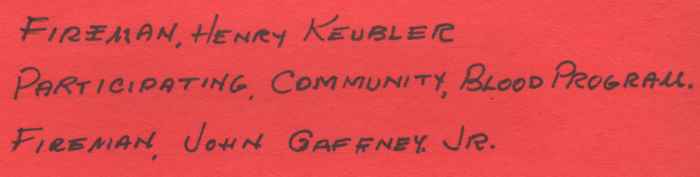 FIREMAN, HENRY KEUBLER
PARTICIPATING, COMMUNITY, BLOOD PROGRAM.
FIREMAN, JOHN GAFFNEY. JR.